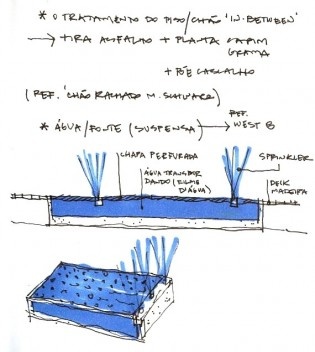 * O TRATAMENTO DO PISO/CHÃO 'IN-BETWEEN'
→ TIRA ASFALTO + PLANTA CAPIM
GRAMA
+ PÕE CASCALHO
(REF. 'CHÃO RACHADO M. SCHWARTZ)
* ÁGUA/FONTE (SUSPENSA) → REF.
WEST 8
CHAPA PERFURADA
SPRINKLER
ÁGUA TRANSBOR
DANDO (FILME
D'ÁGUA)
DECK
MADEIRA